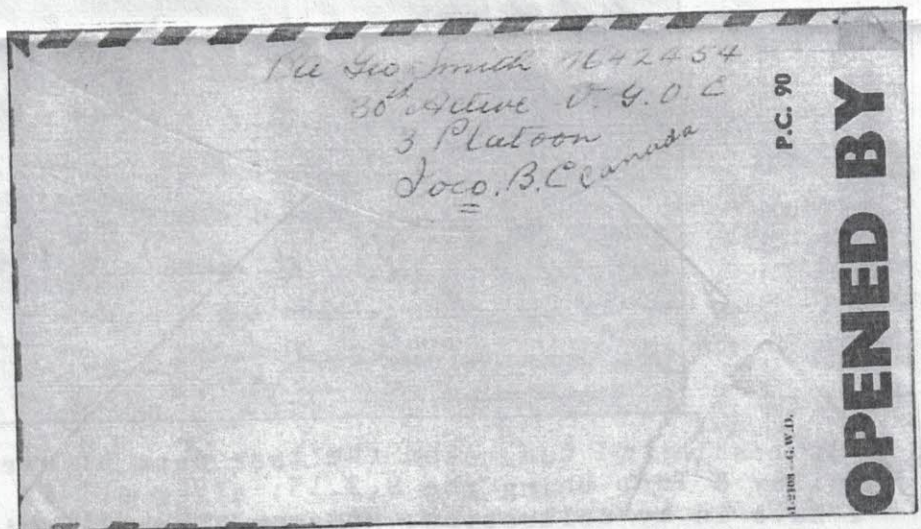 Pte Geo Smith
30th Active V.G.O.C
3 Platoon
Ioco. B.C Canada
P.C. 90
OPENED BY
G.W.D.